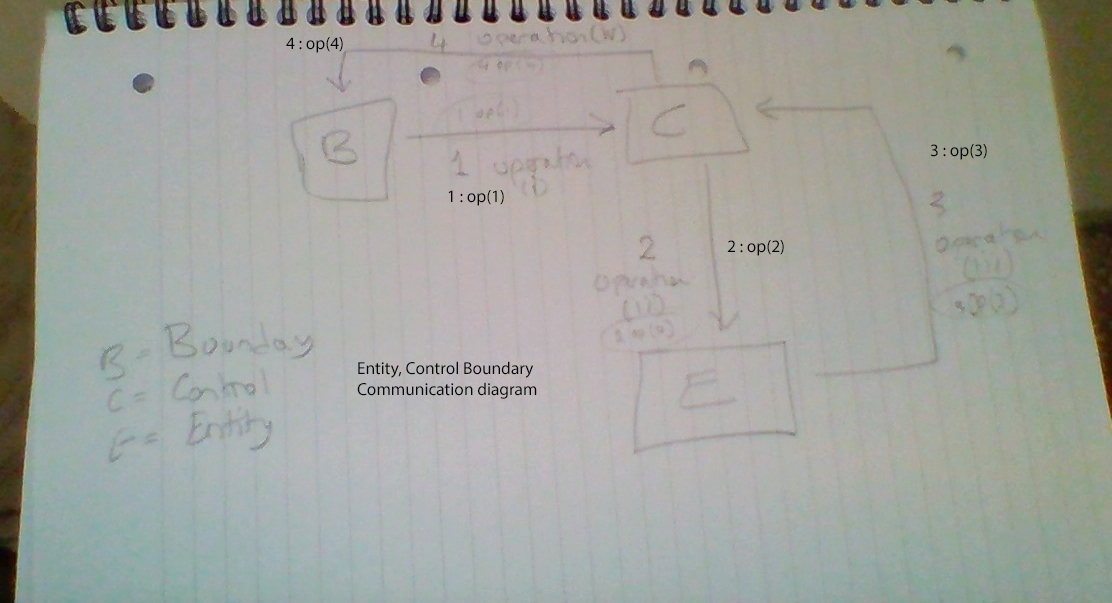 4 : op(4)
4 operation(iv)
4 op(4)
B
1 op(1)
C
1 operation
(i)
1 : op(1)
3 : op(3)
3
operation
(iii)
3 op(3)
2
operation
(ii)
2 op(2)
2 : op(2)
E
B = Bounday
C = Control
E = Entity
Entity, Control Boundary
Communication diagram